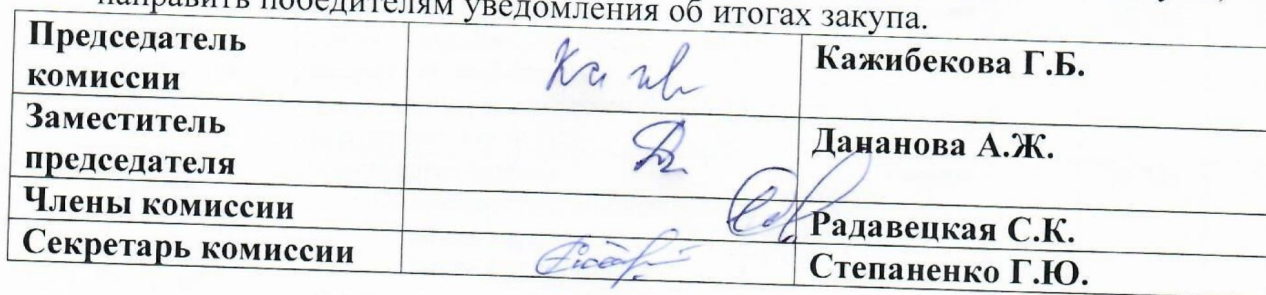 направить победителям уведомления об итогах закупа.
Председатель
комиссии
Кажибекова Г.Б.
Заместитель
председателя
Дананова А.Ж.
Члены комиссии
Радавецкая С.К.
Секретарь комиссии
Степаненко Г.Ю.